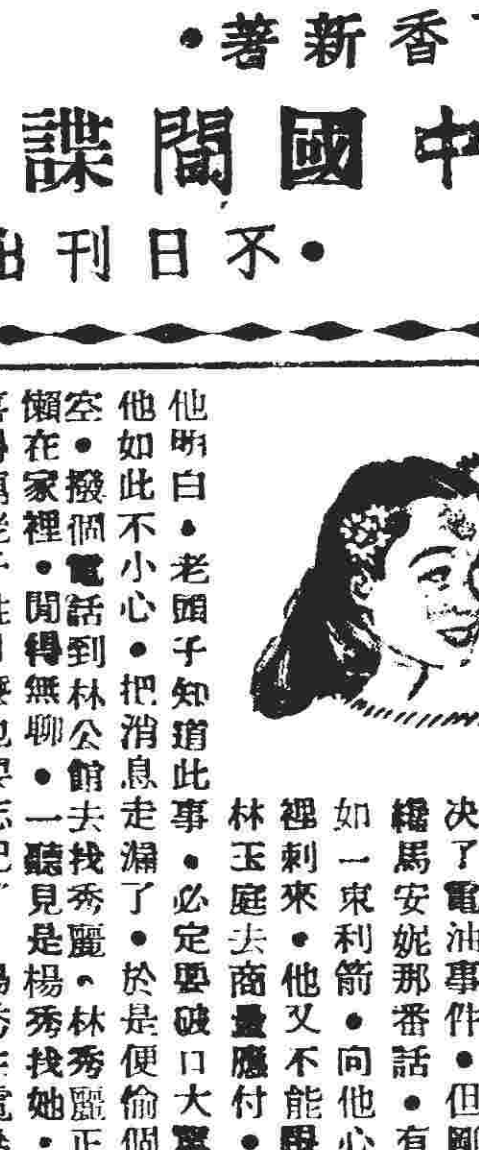 香新著•
中國間諜
•不日刊出
决了電油事件•但剛
馬安妮那番話•有
如一束利箭•向他心
裡刺來•他又不能跟
林玉庭去商量應付•
他明白•老頭子知道此事•必定要破口大罵
他如此不小心•把消息走漏了•於是便偷個
空•撥個電話到林公館去找秀麗•林秀麗正
懶在家裡•閒得無聊•一聽見是楊秀找她•